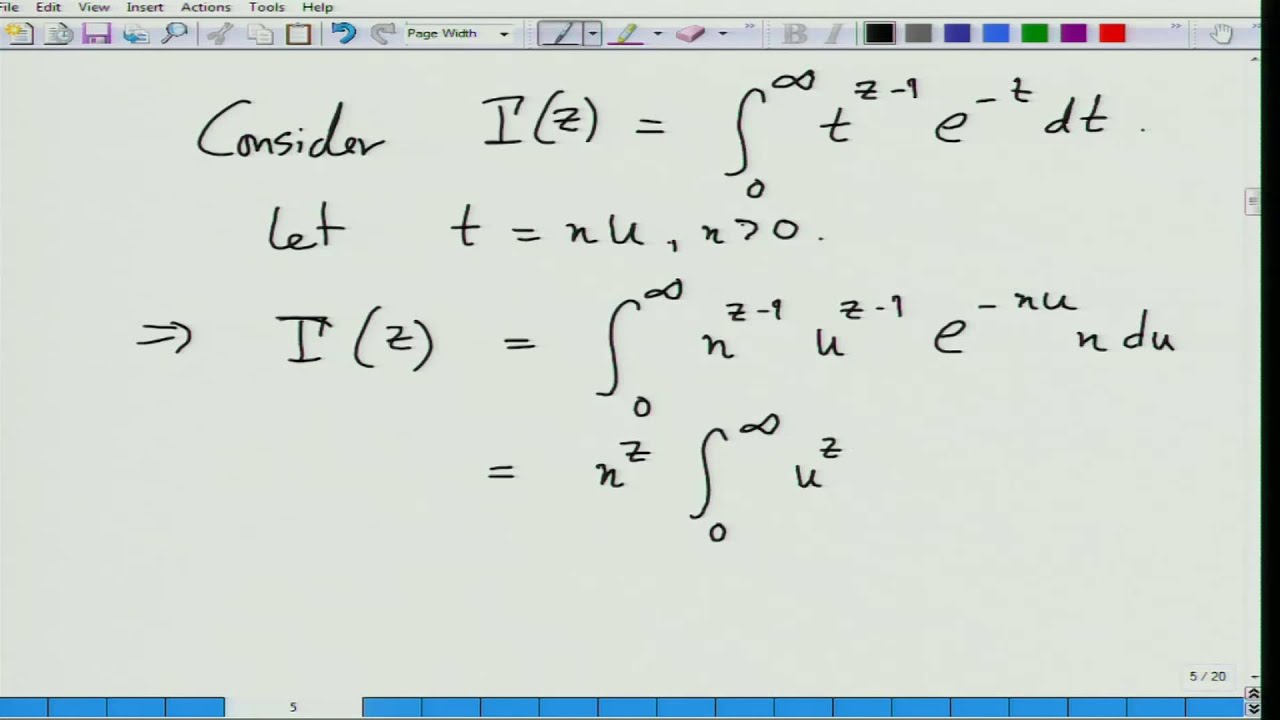 File Edit View Insert Actions Tools Help
Page Width
Consider Γ(z) = ∫₀^∞ t^{z-1} e^{-t} dt.
Let t = nu, n>0.
⇒ Γ(z) = ∫₀^∞ n^{z-1} u^{z-1} e^{-nu} n du
= n^z ∫₀^∞ u^z
5 / 20
5